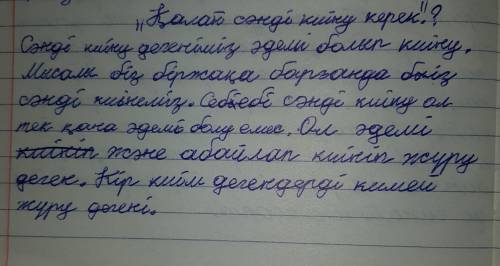 „Қалай сәнді киіну керек".?
Сәнді киіну дегеніміз әдемі болып киіну.
Мисалы біз біржақа барғанда біз
сәнді киінеміз. Себебі сәнді киіну ол
тек қана әдемі болу емес. Ол әдемі
киініп және абайлап киініп жүру
деген. Кір киім дегендерді кимей
жүру дәгені.